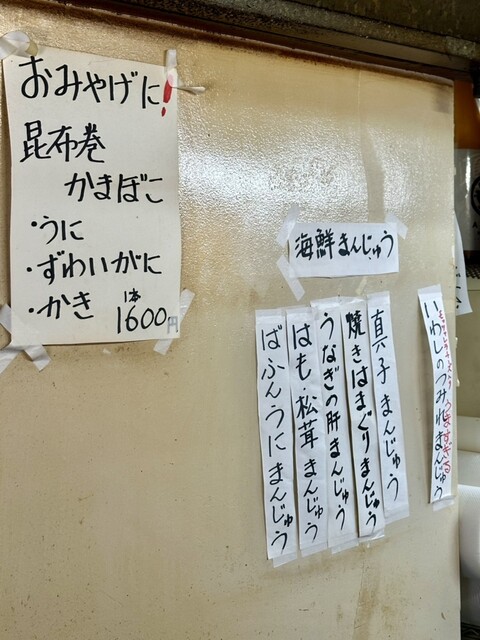 おみやげに!
昆布巻
かまぼこ
・うに
・ずわいがに
・かき 1本
1600円
海鮮まんじゅう
真子まんじゅう
焼きはまぐりまんじゅう
うなぎの肝まんじゅう
はも・松茸まんじゅう
ばふんうにまんじゅう
うますぎる
いわしのつみれまんじゅう